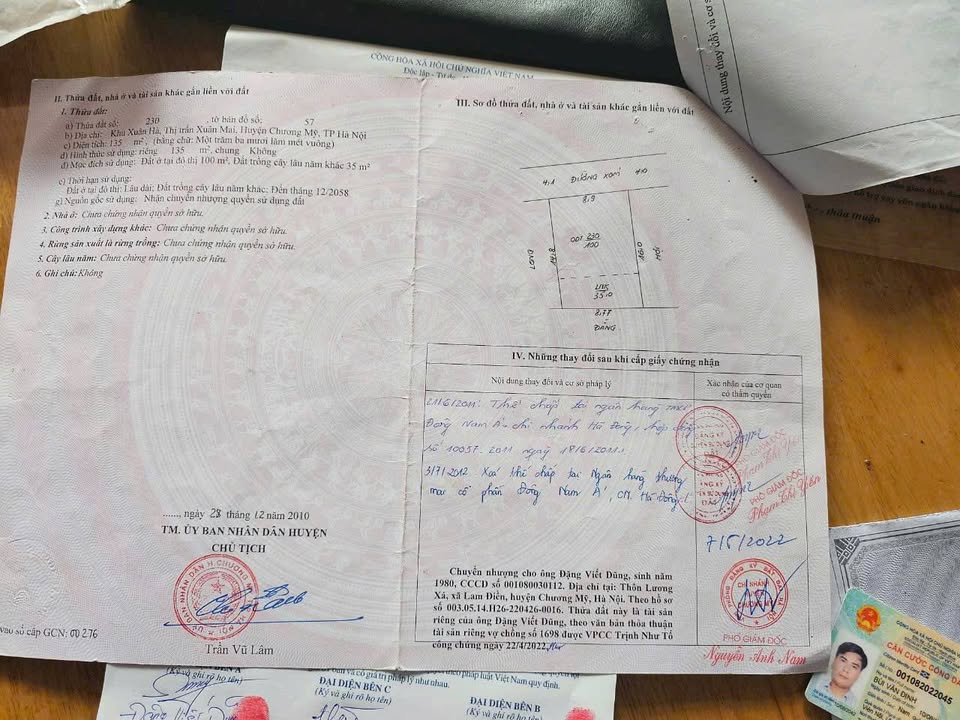 CỘNG HÒA XÃ HỘI CHỦ NGHĨA VIỆT NAM
Độc lập - Tự do
Nội dung thay đổi và cơ sở
II. Thửa đất, nhà ở và tài sản khác gắn liền với đất
1. Thửa đất:
a) Thửa đất số: 230 , tờ bản đồ số: 57
b) Địa chỉ: Khu Xuân Hà, Thị trấn Xuân Mai, Huyện Chương Mỹ, TP Hà Nội
c) Diện tích: 135 m², (bằng chữ: Một trăm ba mươi lăm mét vuông)
d) Hình thức sử dụng: riêng 135 m², chung Không
đ) Mục đích sử dụng: Đất ở tại đô thị 100 m², Đất trồng cây lâu năm khác 35 m²
e) Thời hạn sử dụng:
Đất ở tại đô thị: Lâu dài; Đất trồng cây lâu năm khác: Đến tháng 12/2058
g) Nguồn gốc sử dụng: Nhận chuyển nhượng quyền sử dụng đất
2. Nhà ở: Chưa chứng nhận quyền sở hữu.
3. Công trình xây dựng khác: Chưa chứng nhận quyền sở hữu.
4. Rừng sản xuất là rừng trồng: Chưa chứng nhận quyền sở hữu.
5. Cây lâu năm: Chưa chứng nhận quyền sở hữu.
6. Ghi chú: Không
......, ngày 28 tháng 12 năm 2010
TM. ỦY BAN NHÂN DÂN HUYỆN
CHỦ TỊCH
Trần Vũ Lâm
vào sổ cấp GCN: 00276
III. Sơ đồ thửa đất, nhà ở và tài sản khác gắn liền với đất
ĐƯỜNG XÓM
8,9
ODT 230
100
35,0
8,77
IV. Những thay đổi sau khi cấp giấy chứng nhận
Nội dung thay đổi và cơ sở pháp lý
Xác nhận của cơ quan
có thẩm quyền
21/6/2011: Thế chấp tại ngân hàng TMCP
Đông Nam Á - chi nhánh Hà Đông, hợp đồng
số 10057-2011 ngày
3/7/2012 Xoá thế chấp tại Ngân hàng thương
mại cổ phần Đông Nam Á, CN. Hà Đông
PHÓ GIÁM ĐỐC
Phạm Thị Yên
PHÓ GIÁM ĐỐC
Phạm Thị Yên
7/5/2022
Chuyển nhượng cho ông Đặng Viết Dũng, sinh năm
1980, CCCD số 001080030112. Địa chỉ tại: Thôn Lương
Xá, xã Lam Điền, huyện Chương Mỹ, Hà Nội. Theo hồ sơ
số 003.05.14.H26-220426-0016. Thửa đất này là tài sản
riêng của ông Đặng Viết Dũng, theo văn bản thỏa thuận
tài sản riêng vợ chồng số 1698 được VPCC Trịnh Như Tố
công chứng ngày 22/4/2022
CHI NHÁNH
PHÓ GIÁM ĐỐC
Nguyễn Anh Nam
thỏa thuận
CĂN CƯỚC CÔNG DÂN
001082022045
BÙI VĂN ĐỊNH
Nam
theo pháp luật Việt Nam quy định.
có giá trị pháp lý như nhau.
(Ký và ghi rõ họ tên)
ĐẠI DIỆN BÊN C
(Ký và ghi rõ họ tên)
ĐẠI DIỆN BÊN B
(Ký và ghi rõ họ tên)